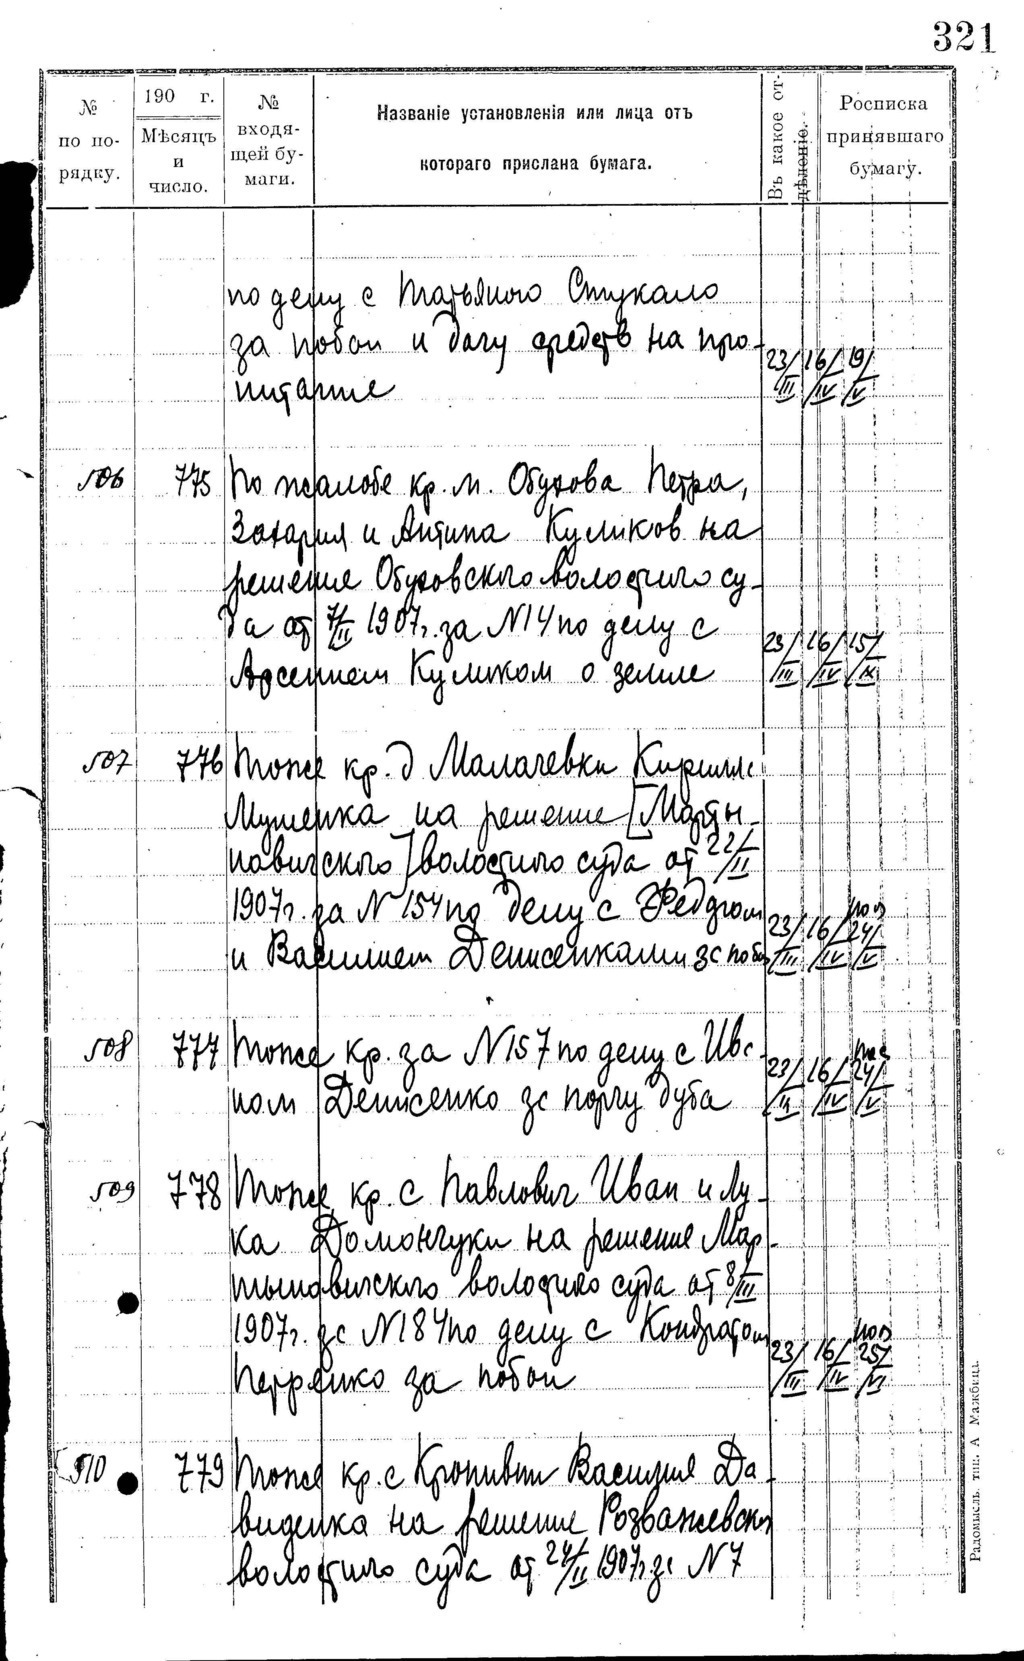 321
№ по по-рядку.
190 г. Мѣсяцъ и число.
№ входя-щей бу-маги.
Названіе установленія или лица отъ
котораго прислана бумага.
Въ какое от-дѣленіе.
Росписка принявшаго бумагу.
по делу с Татьяною Стукало
за побои и дачу средств на про-
питание 23/III 16/IV 19/V
506 775 По жалобе кр. м. Обухова Петра,
Захария и Антипа Куликов на
решение Обуховского волостного су-
да от 7/II 1907г. за N14 по делу с
Арсением Куликом о земле 23/III 16/IV 15/IX
507 776 Тоже кр. д Малачевки Кирилла
Мушенка на решение [Марты-
новичского] волостного суда от 22/II
1907г. за N 154 по делу с Федором
и Василием Денисенками за побои 23/III 16/IV 24/V
508 777 Тоже кр. за N157 по делу с Ива-
ном Денисенко за порчу дуба 23/III 16/IV 24/V
509 778 Тоже кр. с Павлович Иван и Лу-
ка Домончуки на решение Мар-
тыновичского волостного суда от 8/III
1907г. за N184 по делу с Кондратом
Петренко за побои 23/III 16/IV 25/VI
510 779 Тоже кр. с Кропивни Василия Да-
виденка на решение Розважевск
волостного суда от 24/II 1907г за N7
Радомысль, тип. А Мажбица.